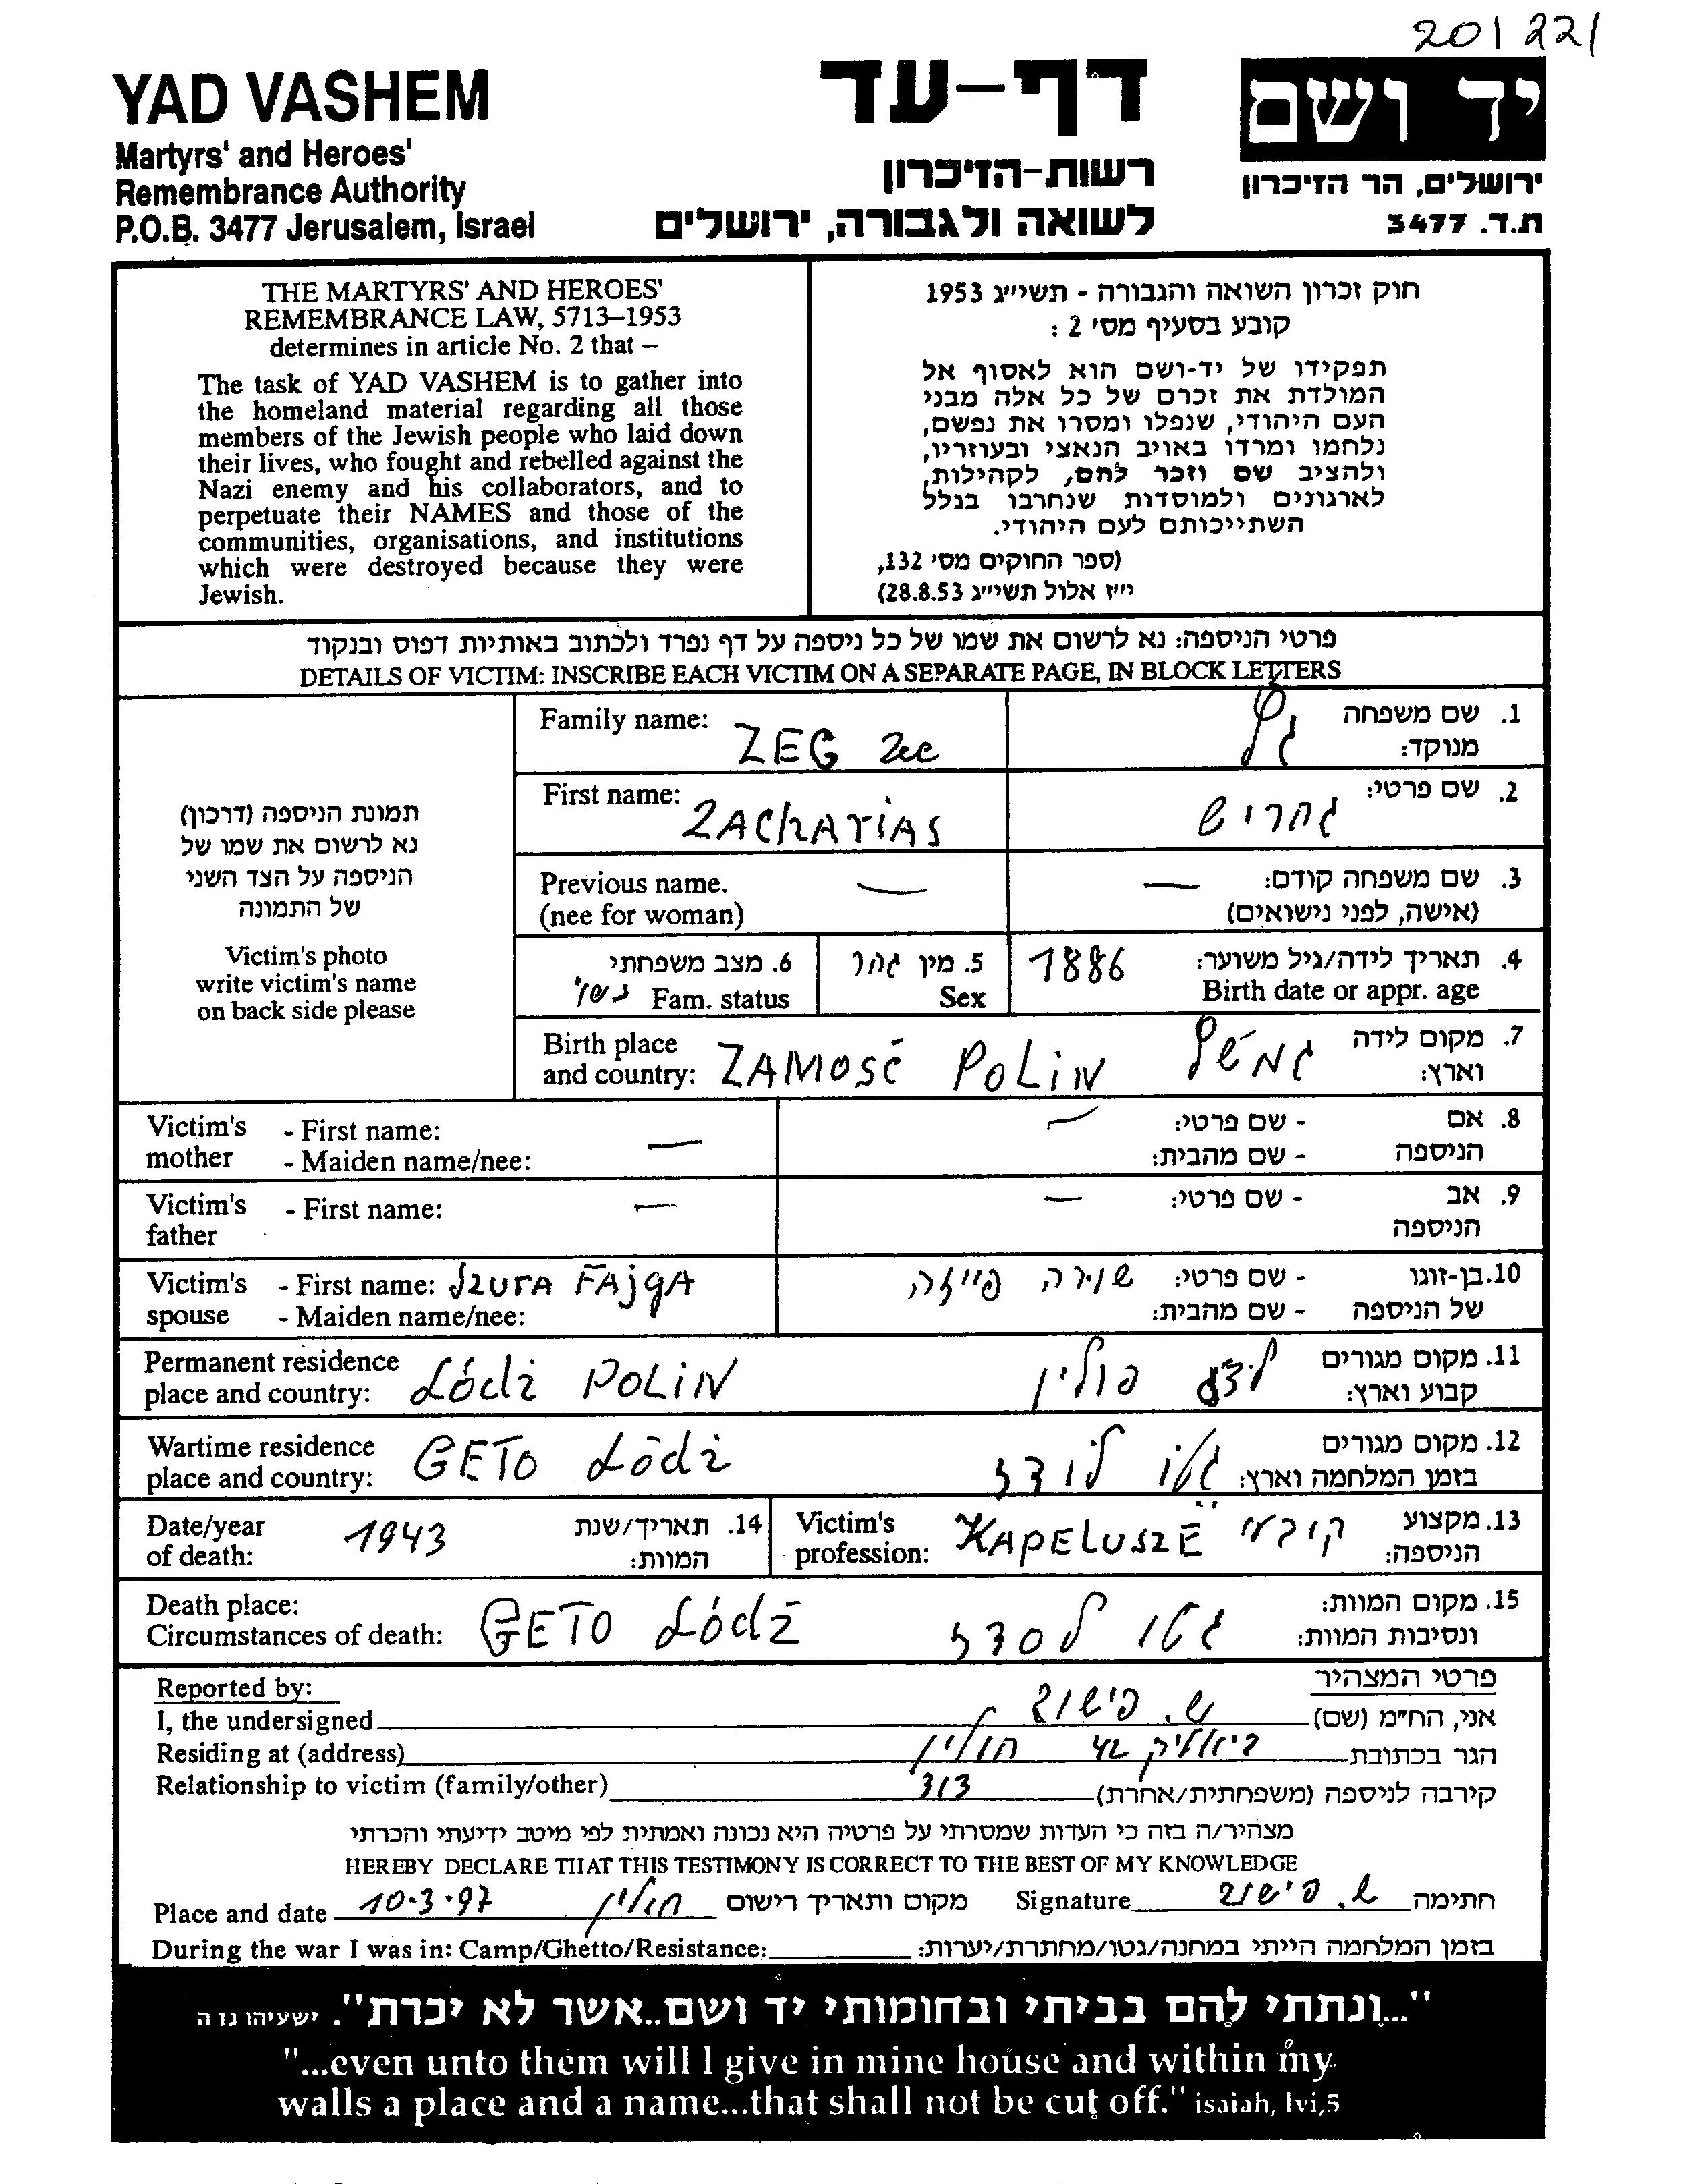 201221
YAD VASHEM
Martyrs' and Heroes'
Remembrance Authority
P.O.B. 3477 Jerusalem, Israel
דף-עד
רשות-הזיכרון
לשואה ולגבורה, ירושלים
יד ושם
ירושלים, הר הזיכרון
ת.ד. 3477
THE MARTYRS' AND HEROES'
REMEMBRANCE LAW, 5713–1953
determines in article No. 2 that –
The task of YAD VASHEM is to gather into
the homeland material regarding all those
members of the Jewish people who laid down
their lives, who fought and rebelled against the
Nazi enemy and his collaborators, and to
perpetuate their NAMES and those of the
communities, organisations, and institutions
which were destroyed because they were
Jewish.
חוק זכרון השואה והגבורה - תשי״ג 1953
קובע בסעיף מס׳ 2 :
תפקידו של יד-ושם הוא לאסוף אל
המולדת את זכרם של כל אלה מבני
העם היהודי, שנפלו ומסרו את נפשם,
נלחמו ומרדו באויב הנאצי ובעוזריו,
ולהציב שם וזכר להם, לקהילות,
לארגונים ולמוסדות שנחרבו בגלל
השתייכותם לעם היהודי.
(ספר החוקים מס׳ 132,
י״ז אלול תשי״ג 28.8.53)
פרטי הניספה: נא לרשום את שמו של כל ניספה על דף נפרד ולכתוב באותיות דפוס ובנקוד
DETAILS OF VICTIM: INSCRIBE EACH VICTIM ON A SEPARATE PAGE, IN BLOCK LETTERS
תמונת הניספה (דרכון)
נא לרשום את שמו של
הניספה על הצד השני
של התמונה
Victim's photo
write victim's name
on back side please
Family name: ZEG
1. שם משפחה
מנוקד:
First name: ZAChARIAS
2. שם פרטי: זחריש
Previous name. —
(nee for woman)
3. שם משפחה קודם: —
(אישה, לפני נישואים)
4. תאריך לידה/גיל משוער: 1886
Birth date or appr. age
5. מין זכר
Sex
6. מצב משפחתי
Fam. status נשוי
Birth place
and country: ZAMOSĆ POLiN
7. מקום לידה
וארץ:
Victim's - First name:
mother - Maiden name/nee: —
8. אם - שם פרטי: —
הניספה - שם מהבית:
Victim's - First name: —
father
9. אב - שם פרטי: —
הניספה
Victim's - First name: SZURA FAjgA
spouse - Maiden name/nee:
10. בן-זוגו - שם פרטי: שורה פייגה
של הניספה - שם מהבית:
Permanent residence
place and country: Łódż POLiN
11. מקום מגורים
קבוע וארץ: לודז פולין
Wartime residence
place and country: GETO Łódż
12. מקום מגורים
בזמן המלחמה וארץ: גטו לודז
Date/year
of death: 1943
14. תאריך/שנת
המוות:
Victim's
profession: KAPELUSZE
13. מקצוע
הניספה: כובעי
Death place:
Circumstances of death: GETO Łódż
15. מקום המוות:
ונסיבות המוות: גטו לודז
Reported by:
פרטי המצהיר
I, the undersigned
אני, הח״מ (שם) ש. פישוב
Residing at (address)
הגר בכתובת ביאליק 42 חולון
Relationship to victim (family/other)
קירבה לניספה (משפחתית/אחרת) נכד
מצהיר/ה בזה כי העדות שמסרתי על פרטיה היא נכונה ואמתית לפי מיטב ידיעתי והכרתי
HEREBY DECLARE THAT THIS TESTIMONY IS CORRECT TO THE BEST OF MY KNOWLEDGE
Place and date 10.3.97 חולון מקום ותאריך רישום Signature ש. פישוב חתימה
During the war I was in: Camp/Ghetto/Resistance: בזמן המלחמה הייתי במחנה/גטו/מחתרת/יערות:
"...ונתתי להם בביתי ובחומותי יד ושם..אשר לא יכרת". ישעיהו נו ה
"...even unto them will I give in mine house and within my
walls a place and a name...that shall not be cut off." isaiah, lvi,5